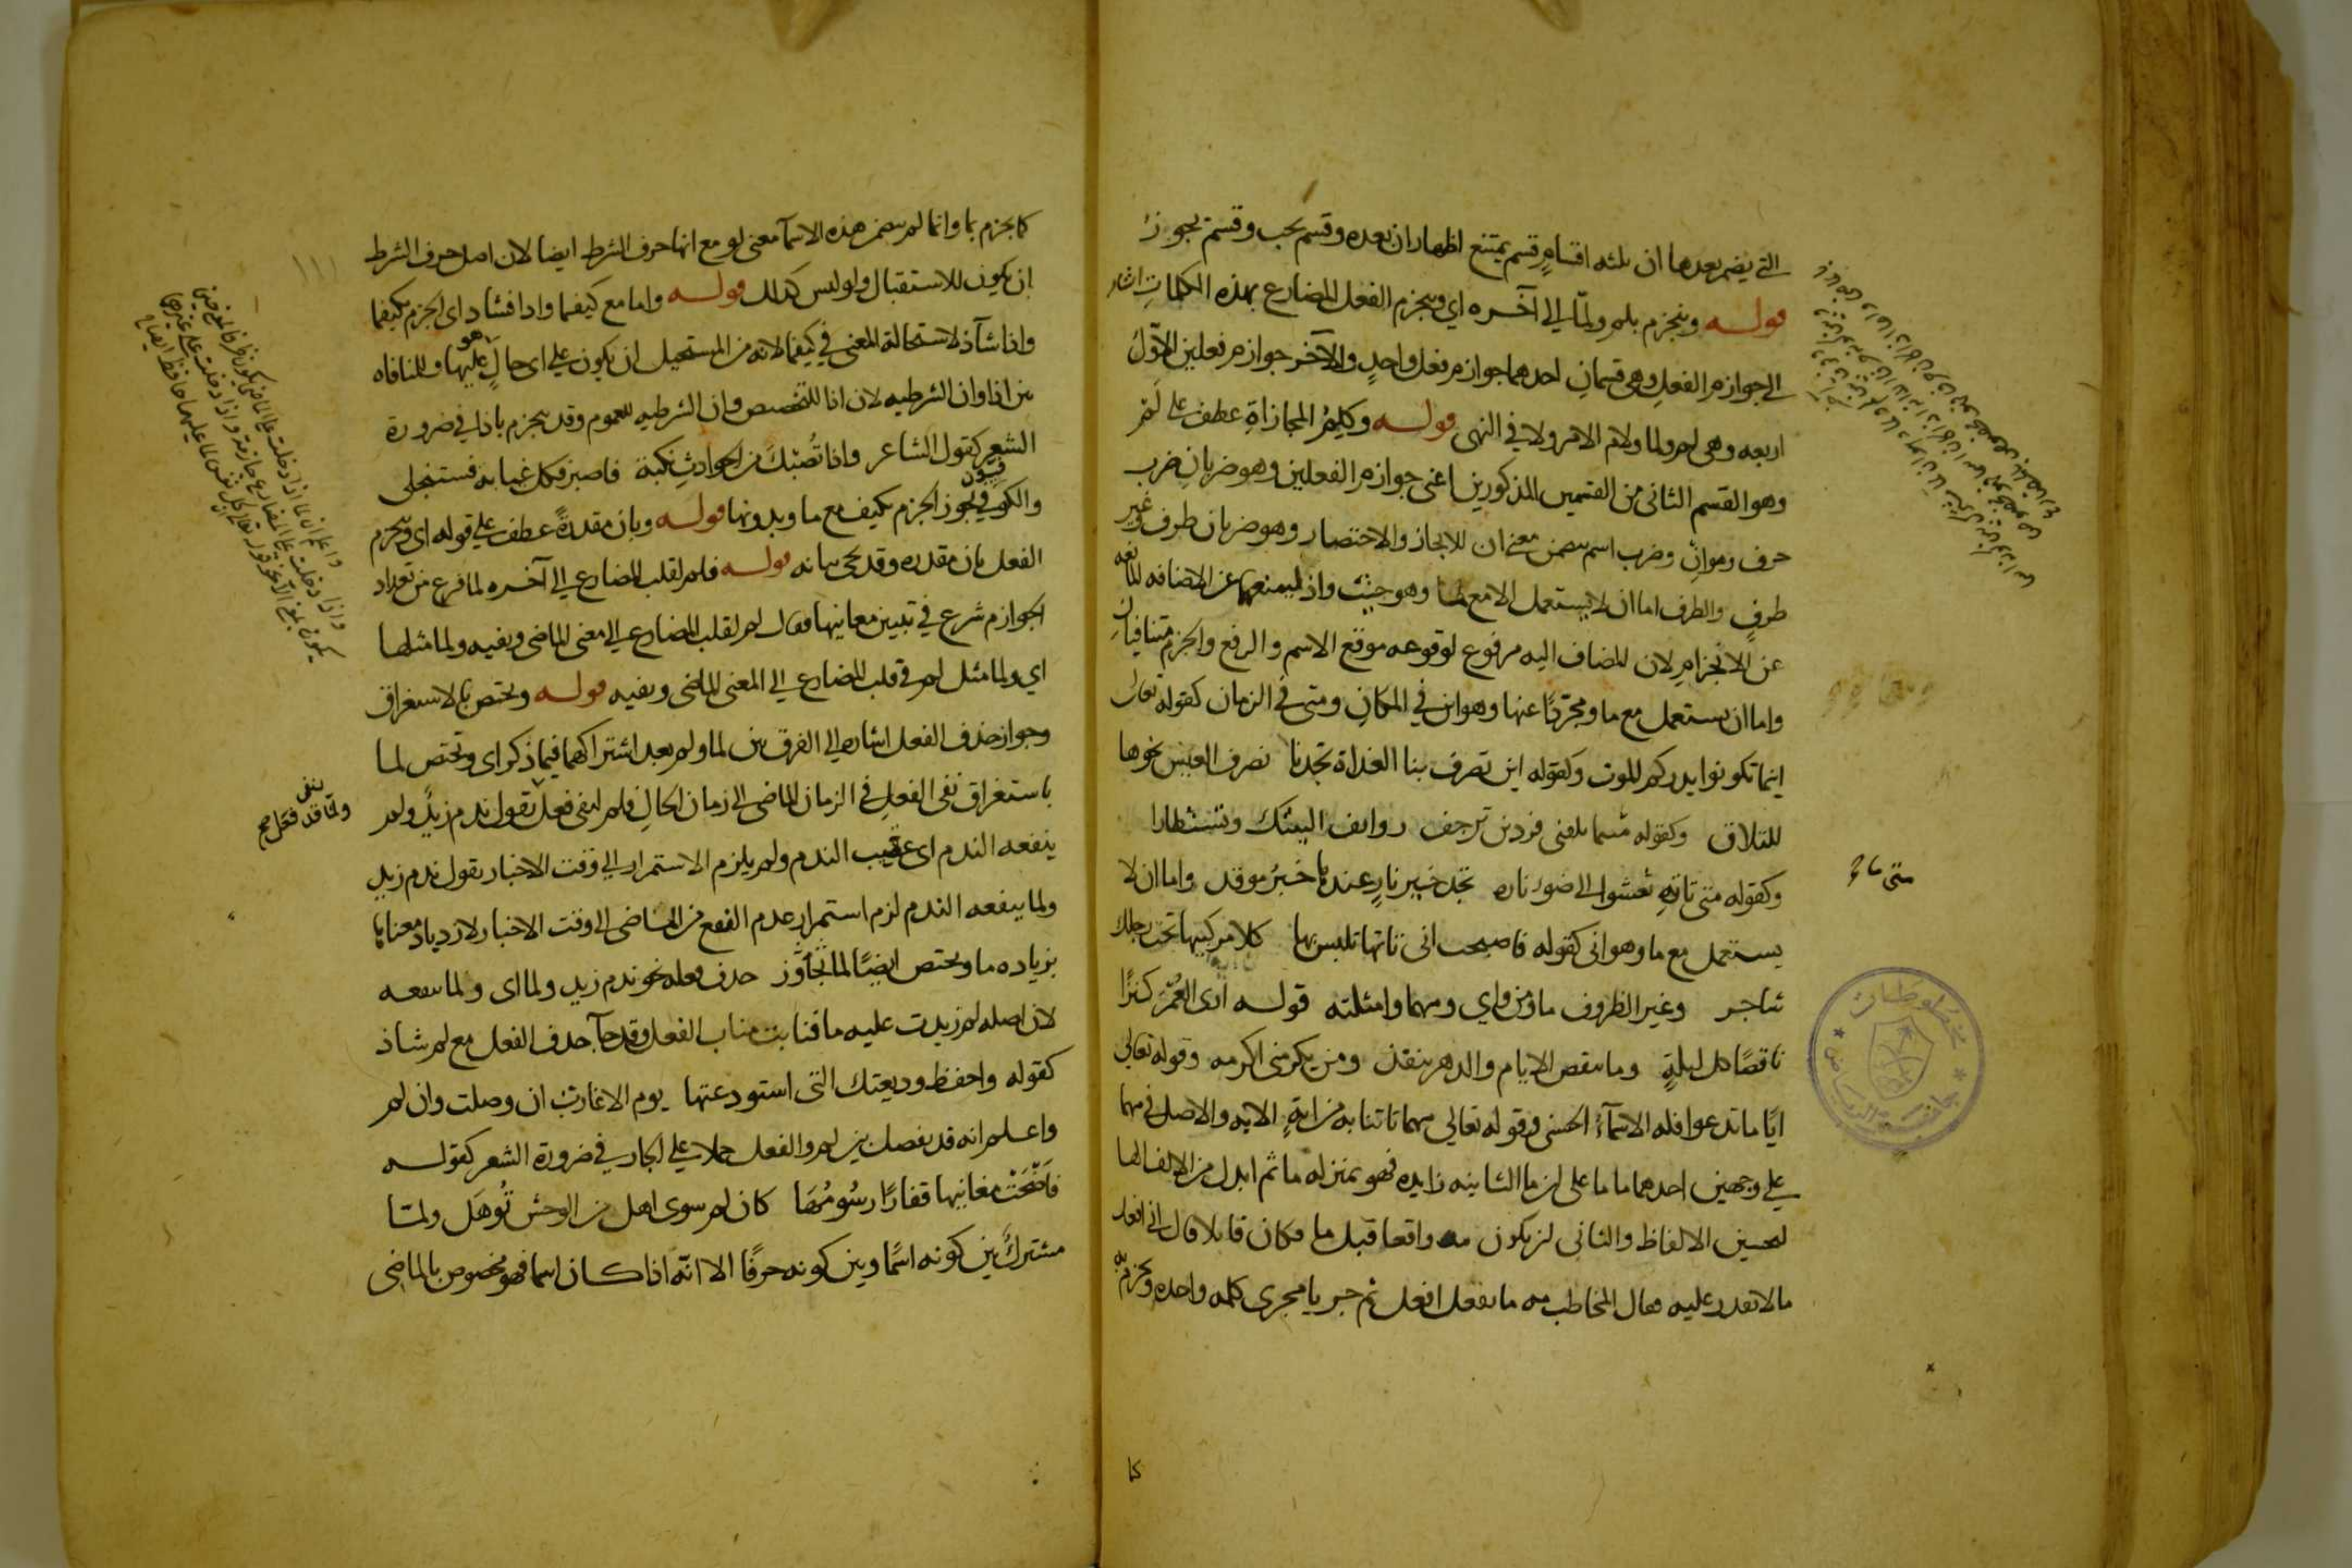 التي يضمر بعدها ان ثلثه اقسامٍ قسم يمتنع اظهار ان بعده وقسم يجب وقسم يجوز
قولـه وينجزم بلم ولمّا الي آخره اي وينجزم الفعل المضارع بهذه الكلماتِ اشار
الي جوازم الفعلِ وهي قسمانِ احدهما جوازم فعل واحدٍ والآخر جوازم فعلين الاوّلُ
اربعه وهي لم ولما ولام الامر ولا في النهى قولـه وكلِمُ المجازاةِ عطف على لَم
وهو القسم الثاني من القسمين المذكورين اعنى جوازم الفعلين وهو ضربانِ ضرب
حرف وهو ان وضرب اسم يتضمن معنى ان للايجاز والاختصار وهو ضربان ظرف وغير
ظرفٍ والظرف اما ان لا يستعمل الا مع ما وهو حيث واذ ليمنعهما عن الاضافه المانعه
عن الانجزامِ لان المضاف اليه مرفوع لوقوعه موقع الاسم والرفع والجزم متنافيانِ
واما ان يستعمل مع ما ومجرّدًا عنها وهو اين في المكانِ ومتى في الزمان كقوله تعالى
اينما تكونوا يدرككم الموت وكقوله اين تصرف بنا الغداة تجدنا نصرف العيس نحوها
للتلاق وكقوله متىما تلقنى فردين ترجف روانف اليتيك وتستطارا
وكقوله متى تاتهِ تعشوا الى ضوء ناره تجد خير نارٍ عندها خيرُ موقد واما ان لا
يستعمل مع ما وهو انى كقوله فاصبحت انى تاتها تلتبس بها كلا مركبيها تحت رجلك
شاجر وغير الظروف ما ومن واي ومهما وامثلته قولـه ارى العُمْرَ كنزًا
ناقصًا كل ليلةٍ وما تنقص الايام والدهر ينفد ومن يكرمنى اكرمه وقوله تعالى
ايًا ما تدعوا فله الاسمآءُ الحسنى وقوله تعالى مهما تاتنا به من ايةٍ الايه والاصل في مهما
على وجهين احدهما ما ما على ان ما الثانيه زايده فهو بمنزله ما ثم ابدل من الالف الها
لتحسين الالفاظ والثاني ان يكون مه واقعا قبل ما فكان قايلا قال انى افعل
مالا تقدر عليه فقال المخاطب مه ما تفعل افعل ثم جريا مجرى كلمه واحده ويجزم به
متى ما
كما
كما يجزم بما وانما لم يتضمن هذه الاسمآ معنى لو مع انها حرف الشرط ايضا لان اصل حرف الشرط
ان يكون للاستقبال ولو ليس كذلك قولـه واما مع كيفما واذا فشاذ اى الجزم بكيفما
واذا شآذ لاستحالة المعنى في كيفما لانه من المستحيل ان يكون على اى حالٍ هو عليها وللمنافاه
بين اذا وان الشرطيه لان اذا للتخصيص وان الشرطيه للعموم وقد ينجزم باذا في ضرورة
الشعر كقول الشاعر واذا تُصِبْكَ من الحوادثِ نكبة فاصبر فكل غيابه فستنجلى
والكوفيون يجوز الجزم بكيف مع ما وبدونها قولـه وبان مقدرةً عطف على قوله اى وينجزم
الفعل بان مقدره وقد يجى بيانه قولـه فلم لقلب المضارع الي آخره لما فرغ من تعداد
الجوازم شرع في تبيين معانيها فقال لم لقلب المضارع الي معنى الماضى ونفيه ولما مثلها
اي ولما مثل لم في قلب المضارع الي المعنى الماضى ونفيه قولـه ويختص بالاستغراق
وجواز حذف الفعل اشاره الي الفرق بين لما ولم بعد اشتراكهما فيما ذكر اى وتختص لما
باستغراق نفى الفعلِ في الزمان الماضى الى زمان الحالِ فلم لنفى فعل تقول ندم زيدٌ ولم
ينفعه الندم اى عقيب الندم ولم يلزم الاستمرار الي وقت الاخبار تقول ندم زيد
ولما ينفعه الندم لزم استمرار عدم النفع من الماضى الى وقت الاخبار لازدياد معناها
بزياده ما ويختص ايضًا لما بجَوَازِ حذف فعله نحو ندم زيد ولما اى ولما ينفعه
لان اصله لم زيدت عليه ما فنابت مناب الفعل وقد جآ حذف الفعل مع لم شاذ
كقوله واحفظ وديعتك التى استودعتها يوم الاغارث ان وصلت وان لم
واعلم انه قد يفصل بين لم والفعل حملا على الجار في ضرورة الشعر كقولـه
فاَضْحَتْ مغانيها قفارًا رسُومُهَا كان لم سوى اهل من الوحش تُوهَل ولمـا
مشتركٌ بين كونه اسمًا وبين كونه حرفًا الا انّه اذا كان اسما فهو مخصوص بالماضى
ولمّا لنفى قد فعل صح
١١١
واعلم ان لما اذا دخلت على الماضى يكون ظرفا بمعنى حين